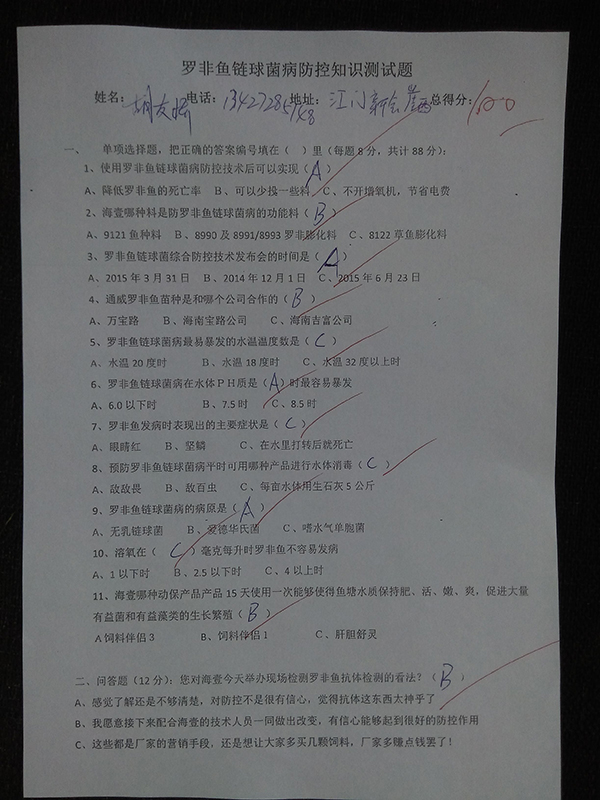 罗非鱼链球菌病防控知识测试题
姓名：胡友桥 电话：13427285748 地址：江门新会崖西 总得分：100
一、 单项选择题，把正确的答案编号填在（ ）里（每题8分，共计88分）：
1、使用罗非鱼链球菌病防控技术后可以实现（A）
A、降低罗非鱼的死亡率 B、可以少投一些料 C、不开增氧机，节省电费
2、海壹哪种料是防罗非鱼链球菌病的功能料（B）
A、9121鱼种料 B、8990及8991/8993罗非膨化料 C、8122草鱼膨化料
3、罗非鱼链球菌综合防控技术发布会的时间是（A）
A、2015年3月31日 B、2014年12月1日 C、2015年6月23日
4、通威罗非鱼苗种是和哪个公司合作的（B）
A、万宝路 B、海南宝路公司 C、海南吉富公司
5、罗非鱼链球菌病最易暴发的水温温度数是（C）
A、水温20度时 B、水温18度时 C、水温32度以上时
6、罗非鱼链球菌病在水体PH质是（A）时最容易暴发
A、6.0以下时 B、7.5时 C、8.5时
7、罗非鱼发病时表现出的主要症状是（C）
A、眼睛红 B、坚鳞 C、在水里打转后就死亡
8、预防罗非鱼链球菌病平时可用哪种产品进行水体消毒（C）
A、敌敌畏 B、敌百虫 C、每亩水体用生石灰5公斤
9、罗非鱼链球菌病的病原是（A）
A、无乳链球菌 B、爱德华氏菌 C、嗜水气单胞菌
10、溶氧在（C）毫克每升时罗非鱼不容易发病
A、1以下时 B、2.5以下时 C、4以上时
11、海壹哪种动保产品产品15天使用一次能够使得鱼塘水质保持肥、活、嫩、爽，促进大量
有益菌和有益藻类的生长繁殖（B）
A饲料伴侣3 B、饲料伴侣1 C、肝胆舒灵
二、问答题（12分）：您对海壹今天举办现场检测罗非鱼抗体检测的看法？（B）
A、感觉了解还是不够清楚，对防控不是很有信心，觉得抗体这东西太神乎了
B、我愿意接下来配合海壹的技术人员一同做出改变，有信心能够起到很好的防控作用
C、这些都是厂家的营销手段，还是想让大家多买几颗饲料，厂家多赚点钱罢了！